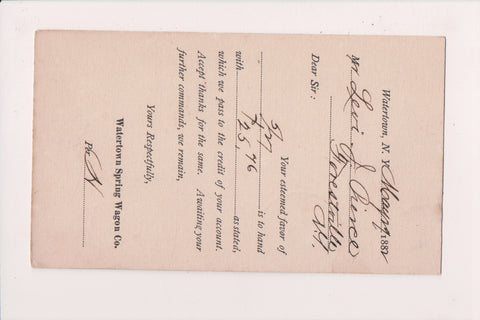 Watertown, N. Y. May 9, 1882
Mr Levi J. Pierce
Forestville N.Y.
Dear Sir:
Your esteemed favor of
5/ is to hand
with 725.76 as stated,
which we pass to the credit of your account.
Accept thanks for the same. Awaiting your
further commands, we remain,
Yours Respectfully,
Watertown Spring Wagon Co.
Per